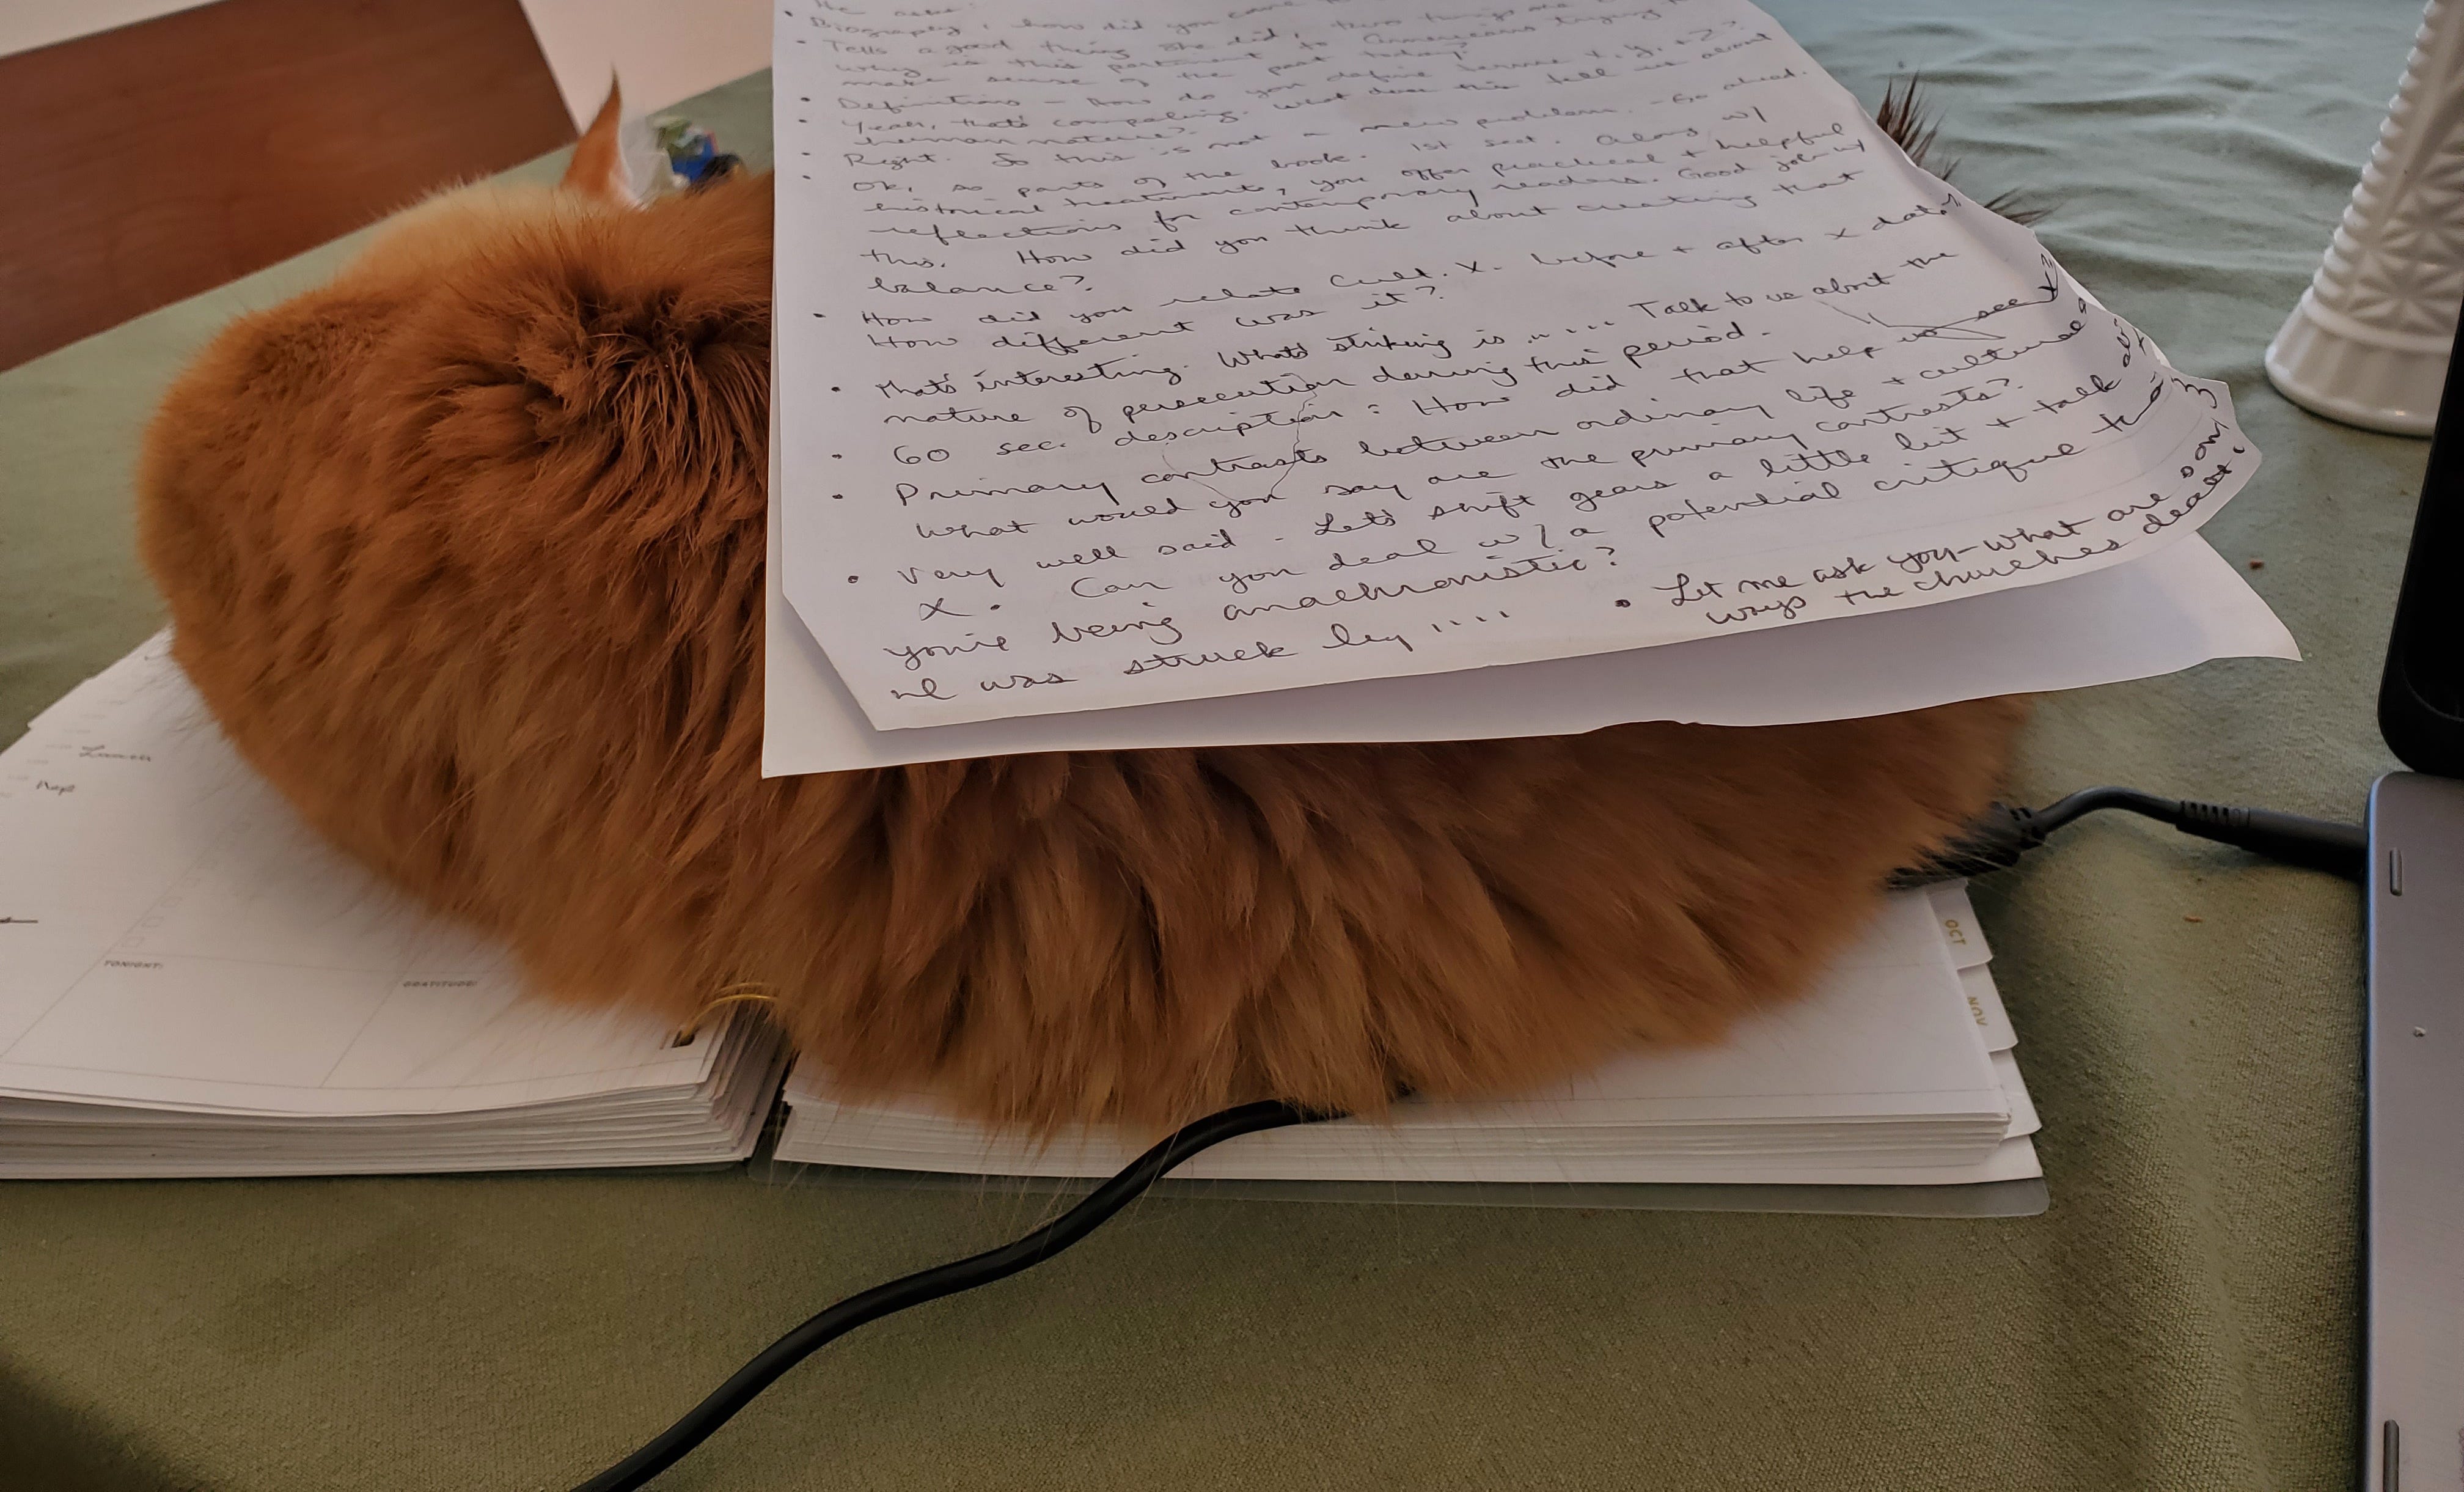 He asks:
• Biography, how did you come to
• Tells a good thing she did, three things are
why is this pertinent to Americans trying to
make sense of the past today?
• Definitions – How do you define terms x, y, + z?
• Yeah, that's compeling. What does this tell us about
human nature?
• Right. So this is not a new problem. – Go ahead.
• Ok, so parts of the book. 1st sect. Along w/
historical treatments, you offer practical + helpful
reflections for contemporary readers. Good job w/
this. How did you think about creating that
balance?
• How did you relate Cult. X. before + after x date?
How different was it?
• That's interesting. What's striking is .... Talk to us about the
nature of persecution during this period.
• 60 sec. description: How did that help us see
• Primary contrasts between ordinary life + cultural
What would you say are the primary contrasts?
• Very well said. Let's shift gears a little bit + talk
X. Can you deal w/ a potential critique that
you're being anachronistic?
• Let me ask you–what are some
ways the churches dealt
He was struck by ....
Lunch
Nap
TONIGHT:
GRATITUDE:
OCT
NOV